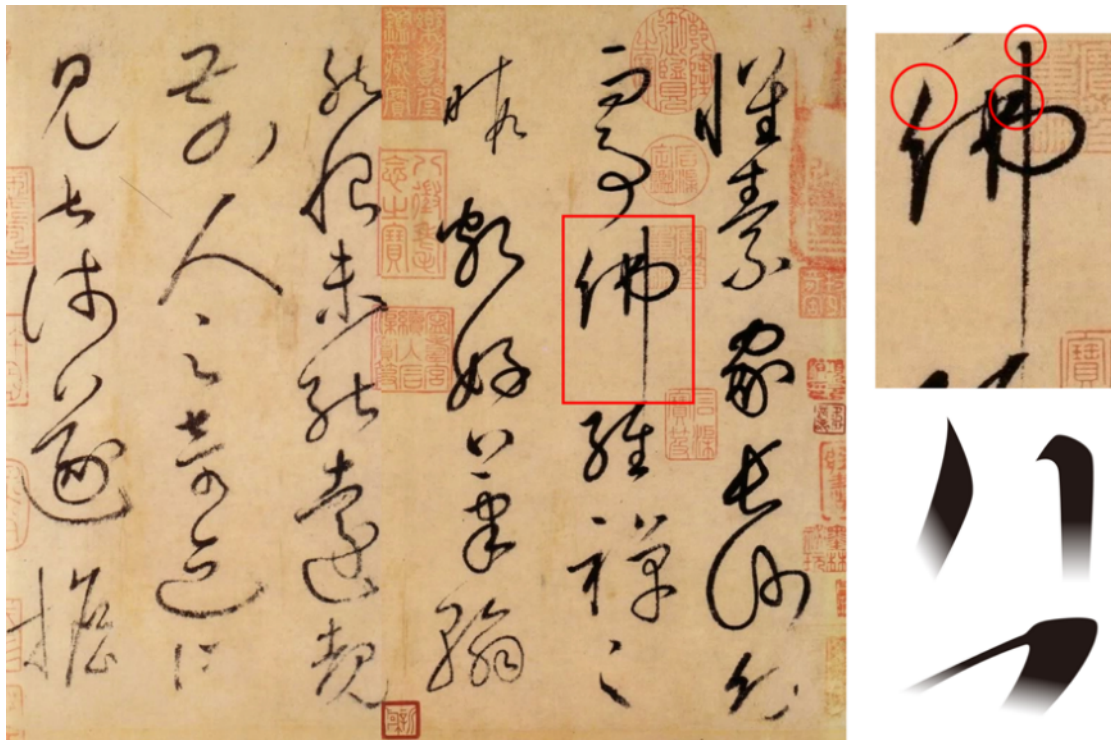 懷素家長沙幼
而事佛經禪之
暇頗好筆翰
然恨未能遠覩
前人之奇迹所
見甚淺遂擔
佛